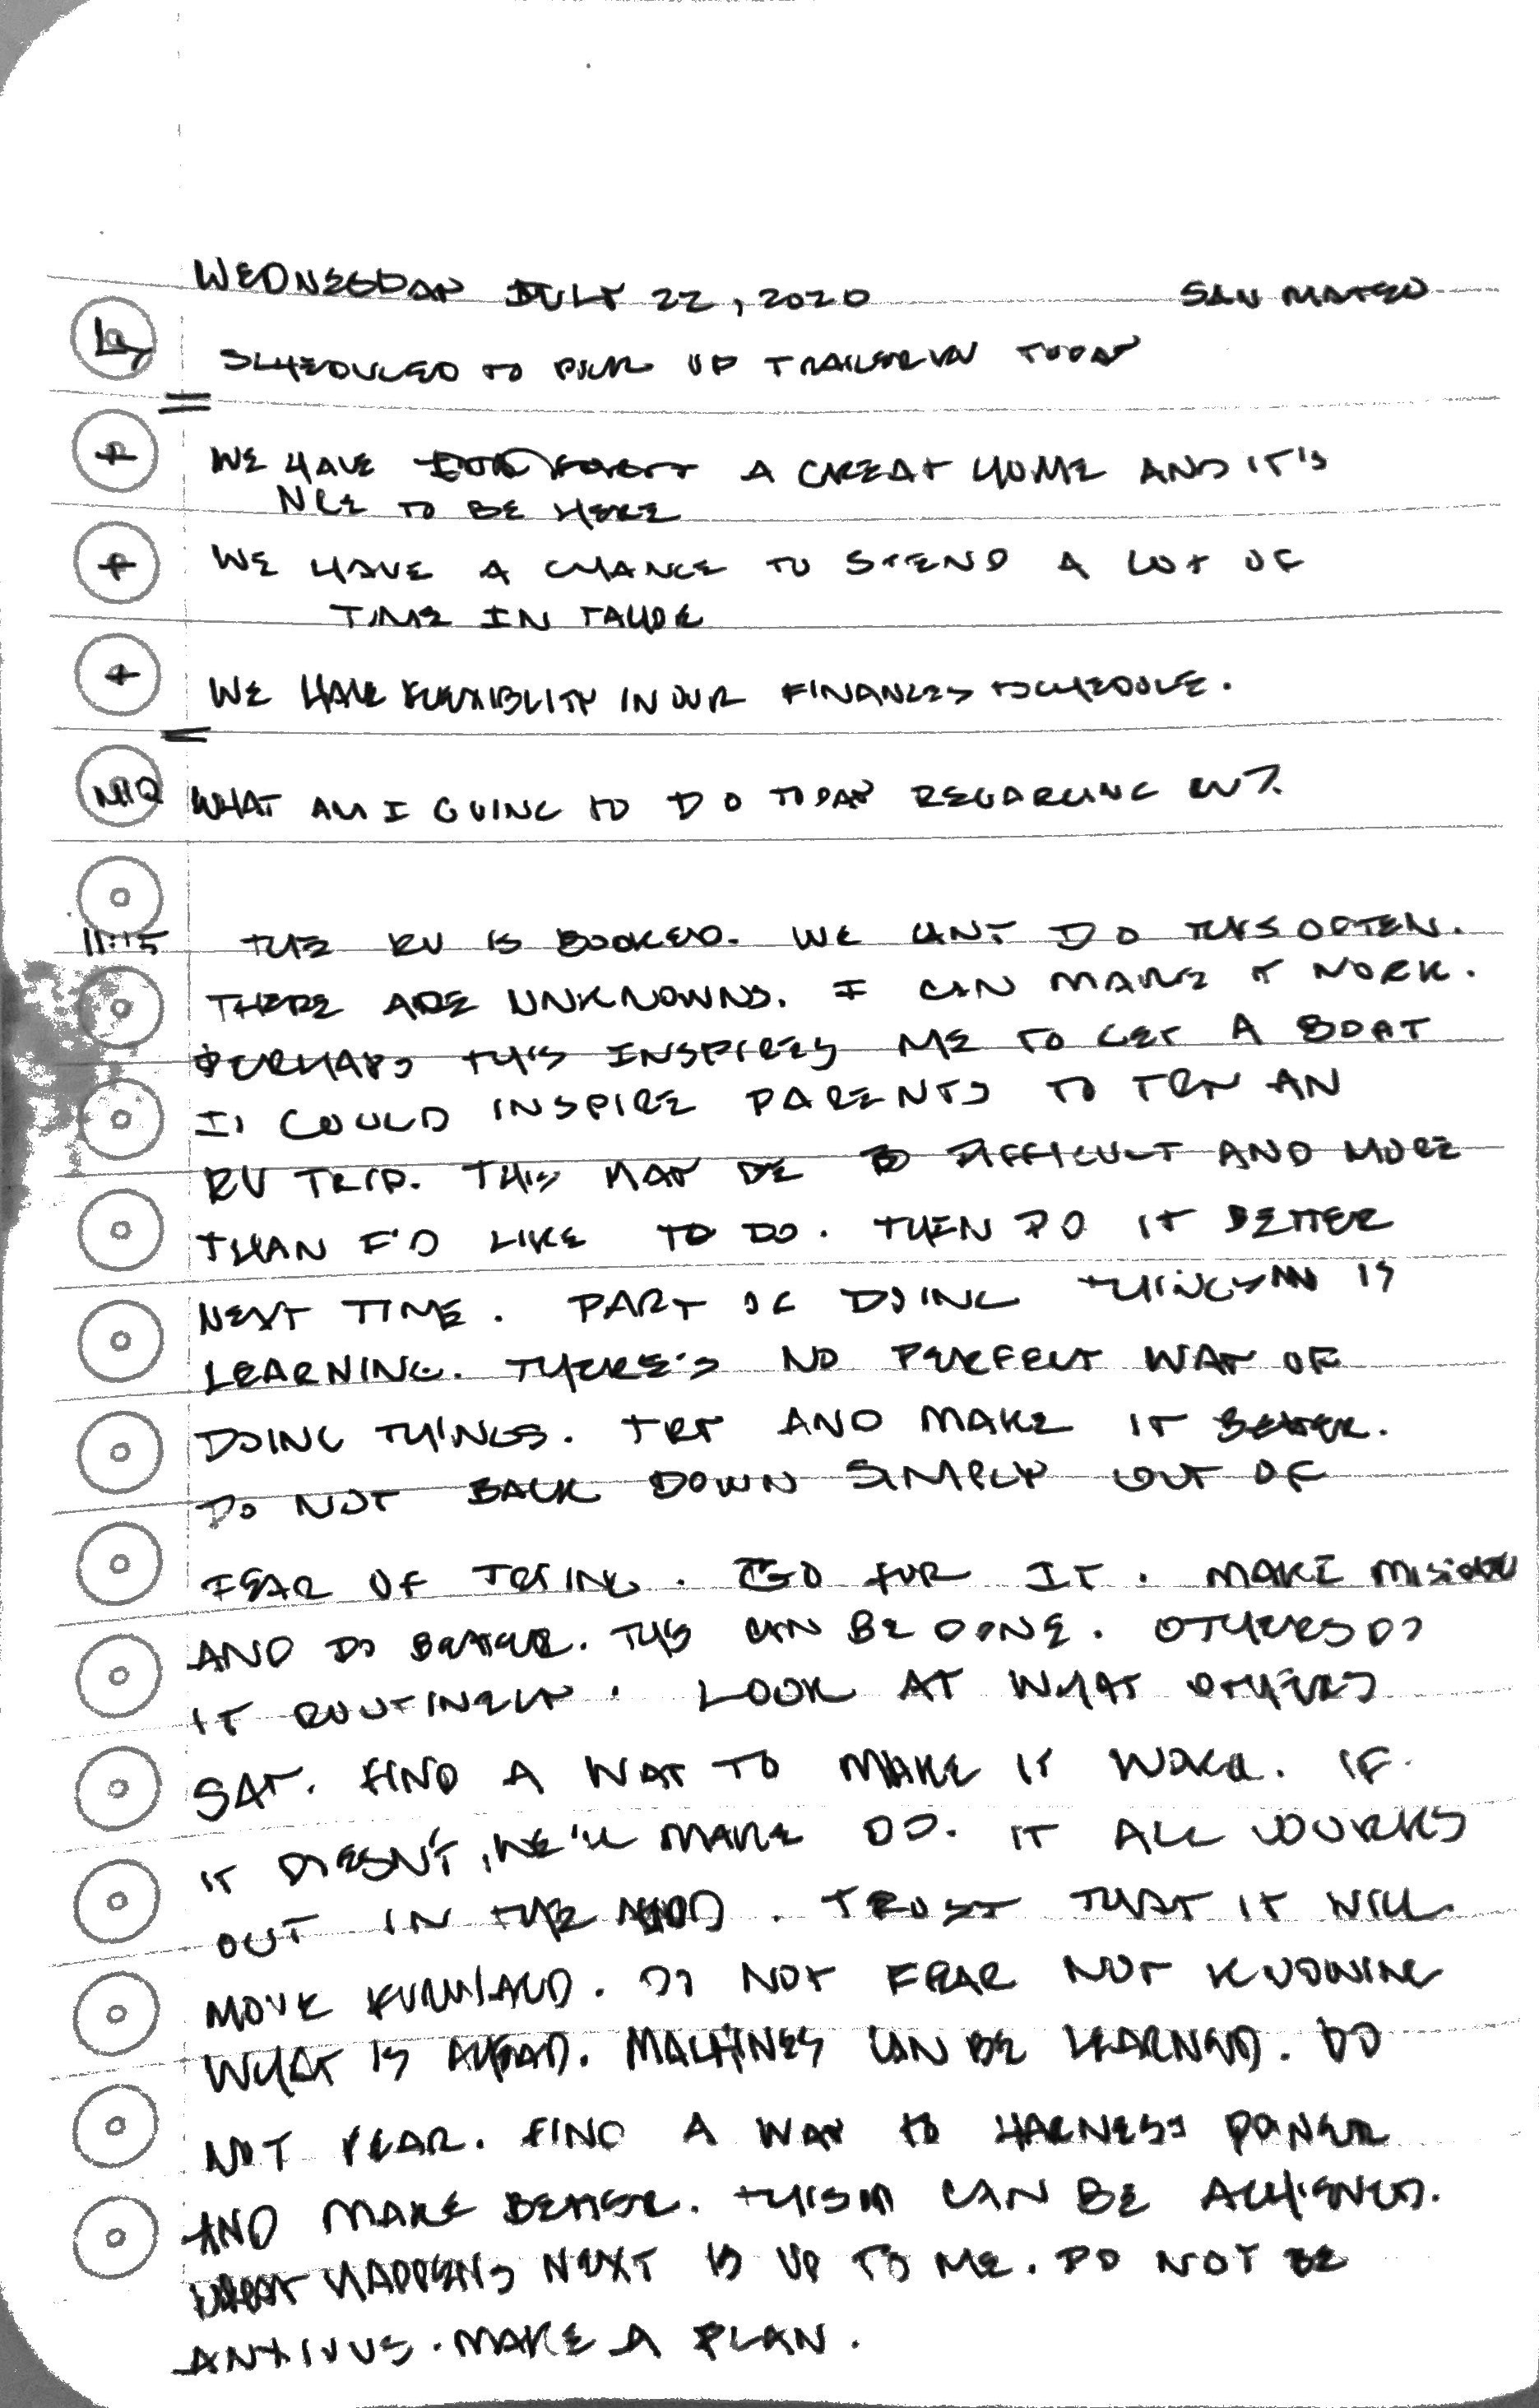 WEDNESDAY JULY 22, 2020 SAN MATEO
SCHEDULED TO PICK UP TRAILER TODAY
+ WE HAVE A GREAT HOME AND IT'S
NICE TO BE HERE
+ WE HAVE A CHANCE TO SPEND A LOT OF
TIME IN TAHOE
+ WE HAVE FLEXIBLITY IN OUR FINANCES SCHEDULE.
MIQ WHAT AM I GOING TO DO TODAY REGARDING RV?
11:15 THE RV IS BOOKED. WE CAN'T DO THIS OFTEN.
THERE ARE UNKNOWNS. I CAN MAKE IT WORK.
PERHAPS THIS INSPIRES ME TO GET A BOAT
IT COULD INSPIRE PARENTS TO TRY AN
RV TRIP. THIS MAY BE DIFFICULT AND MORE
THAN I'D LIKE TO DO. THEN DO IT BETTER
NEXT TIME. PART OF DOING THINGS IS
LEARNING. THERE'S NO PERFECT WAY OF
DOING THINGS. TRY AND MAKE IT BETTER.
DO NOT BACK DOWN SIMPLY OUT OF
FEAR OF TRYING. GO FOR IT. MAKE
AND DO BETTER. THIS CAN BE DONE. OTHERS DO
IT ROUTINELY. LOOK AT WHAT OTHERS
SAY. FIND A WAY TO MAKE IT WORK. IF
IT DOESN'T, WE'LL MAKE DO. IT ALL WORKS
OUT IN THE END. TRUST THAT IT WILL
MOVE FORWARD. DO NOT FEAR NOT KNOWING
WHAT IS AHEAD. MACHINES CAN BE LEARNED. DO
NOT FEAR. FIND A WAY TO HARNESS POWER
AND MAKE BETTER. THIS CAN BE ACHIEVED.
WHAT HAPPENS NEXT IS UP TO ME. DO NOT BE
ANXIOUS. MAKE A PLAN.